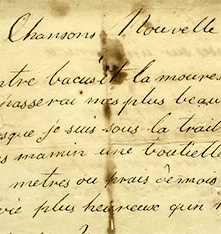 Chansons Nouvelle
ntre bacus et la moures
passerai mes plus beau
sque je suis sous la trail
s mamin une bouteille
metres ou frais de mois
vie plus heureux qu n